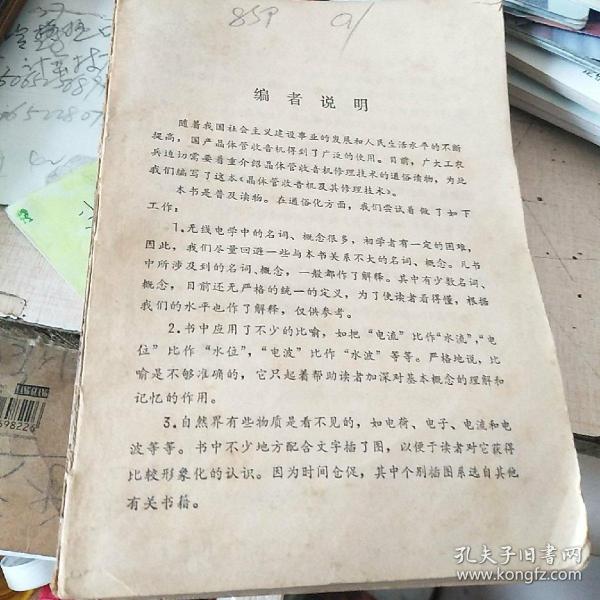 859
编者说明
随着我国社会主义建设事业的发展和人民生活水平的不断
提高，国产晶体管收音机得到了广泛的使用。目前，广大工农
兵迫切需要着重介绍晶体管收音机修理技术的通俗读物，为此
我们编写了这本《晶体管收音机及其修理技术》。
本书是普及读物。在通俗化方面，我们尝试着做了如下
工作：
1.无线电学中的名词、概念很多，初学者有一定的困难，
因此，我们尽量回避一些与本书关系不大的名词、概念。凡书
中所涉及到的名词、概念，一般都作了解释。其中有少数名词、
概念，目前还无严格的统一的定义，为了使读者看得懂，根据
我们的水平也作了解释，仅供参考。
2.书中应用了不少的比喻，如把“电流”比作“水流”，“电
位”比作“水位”，“电波”比作“水波”等等。严格地说，比
喻是不够准确的，它只起着帮助读者加深对基本概念的理解和
记忆的作用。
3.自然界有些物质是看不见的，如电荷、电子、电流和电
波等等。书中不少地方配合文字插了图，以便于读者对它获得
比较形象化的认识。因为时间仓促，其中个别插图系选自其他
有关书籍。
孔夫子旧书网
www.kongfz.com